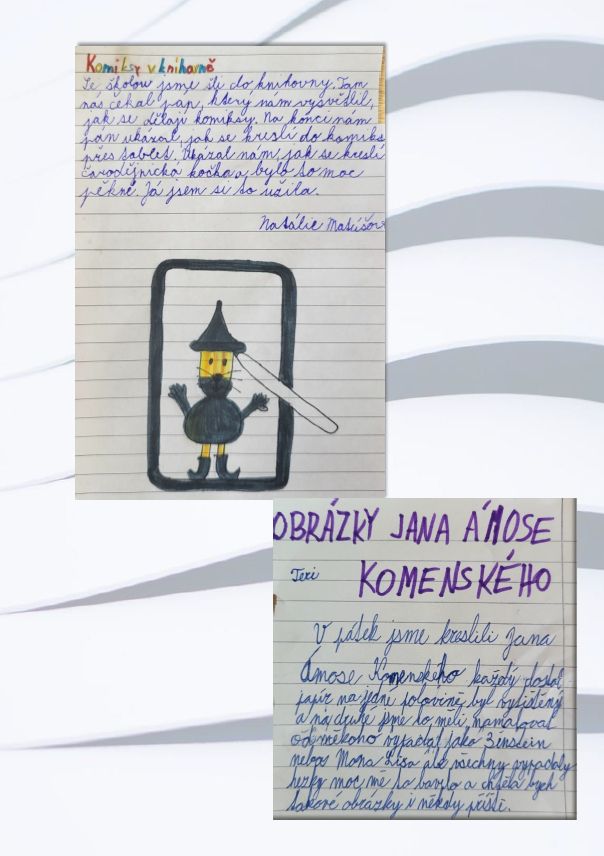 Komiksy v knihovně
Se školou jsme šli do knihovny. Tam
nás čekal pan, který nám vysvětlil,
jak se dělají komiksy. Na konci nám
pan ukázal, jak se kreslí do komiksu
přes tablet. Ukázal nám, jak se kreslí
čarodějnická kočka a bylo to moc
pěkné. Já jsem si to užila.
Natálie
OBRÁZKY JANA ÁMOSE
Teri KOMENSKÉHO
V pátek jsme kreslili Jana
Ámose Komenského každý dostal
papír na jedné polovině byl vytištěný
a na druhé jsme to měli namalovat
od někoho vypadal jako Einstein
nebo Mona Lisa ale všechny vypadaly
hezky moc mě to bavilo a chtěla bych
takové obrázky i někdy příště.